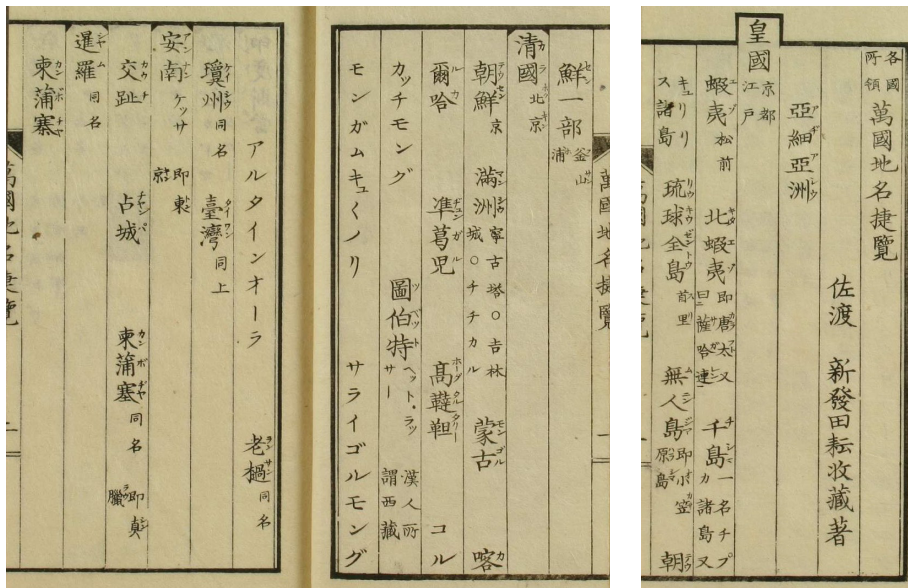 各國所領 萬國地名捷覽
佐渡 新發田耘收藏著
亞細亞洲
皇國 京都 江戸
蝦夷 松前 北蝦夷 即唐太又曰薩哈連 千島 一名チプカ諸島又
キュリリス諸島 琉球全島 首里 無人島 即小笠原島 朝
萬國地名捷覽
鮮一部 釜山浦
清國 北京
朝鮮 京 滿洲 寧古塔○吉林城○チチカル 蒙古 喀
爾哈 凖葛児 髙韃靼 コル
カッチモング 圖伯特 ヘット・ラッサー 漢人所謂西藏
モンガムキュくノリ サライゴルモング
アルタインオーラ 老撾 同名
瓊州 同名 臺灣 同上
安南 ケッサ 即東
交趾 占城 柬蒲塞 同名 即真臘
暹羅 同名
柬蒲塞
萬國地名捷覽